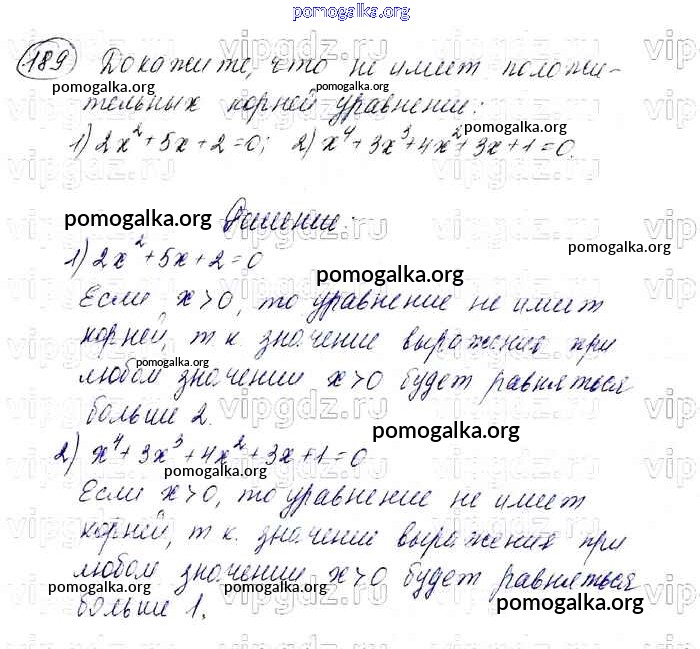 pomogalka.org
189 Докажите, что не имеет положи-
pomogalka.org pomogalka.org
тельных корней уравнение:
pomogalka.org
1) 2x² + 5x + 2 = 0; 2) x⁴ + 3x³ + 4x² + 3x + 1 = 0.
pomogalka.org Решение:
pomogalka.org
1) 2x² + 5x + 2 = 0
pomogalka.org
Если x > 0, то уравнение не имеет
корней, т к. значение выражения при
pomogalka.org
любом значении x > 0 будет равняться
больше 2.
pomogalka.org
2) x⁴ + 3x³ + 4x² + 3x + 1 = 0
pomogalka.org
Если x > 0, то уравнение не имеет
корней, т к. значение выражения при
любом значении x > 0 будет равняться
pomogalka.org pomogalka.org
больше 1.
pomogalka.org